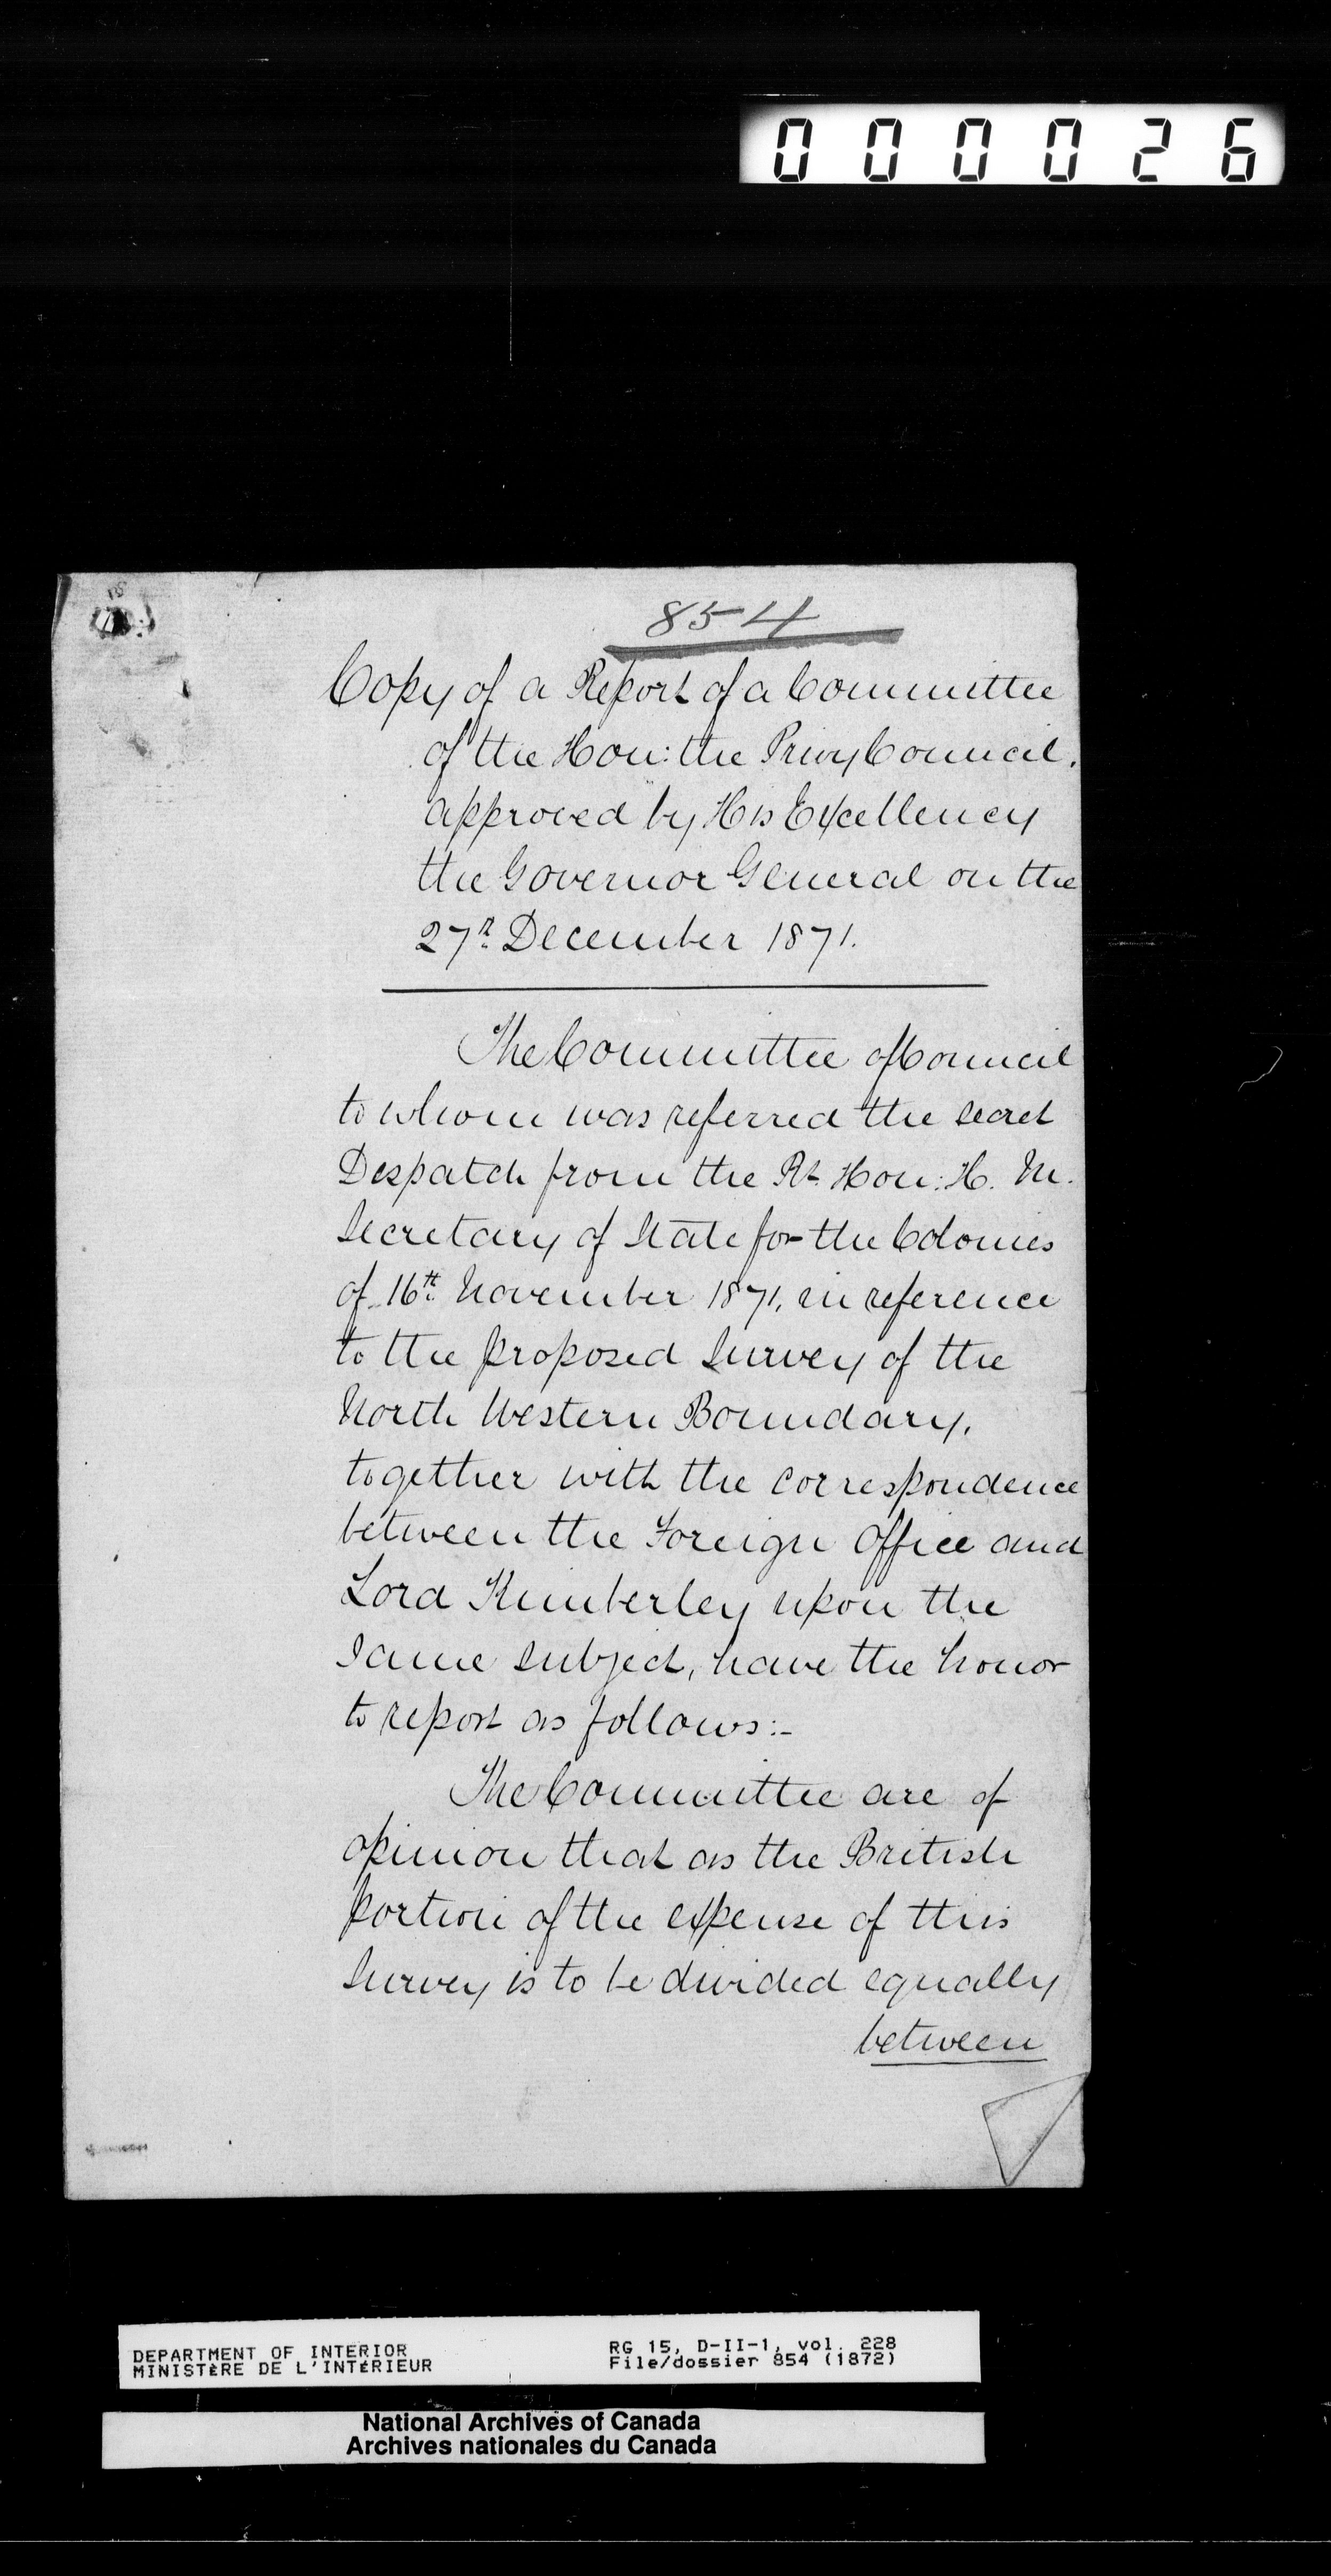 000026
854
Copy of a Report of a Committee
of the Hon: the Privy Council,
approved by His Excellency
the Governor General on the
27th December 1871.
The Committee of Council
to whom was referred the secret
Despatch from the Rt. Hon: H. M.
Secretary of State for the Colonies
of 16th November 1871, in reference
to the proposed Survey of the
North Western Boundary,
together with the correspondence
between the Foreign Office and
Lord Kimberley upon the
same subject, have the honor
to report as follows:-
The Committee are of
opinion that as the British
portion of the expense of this
Survey is to be divided equally
between
DEPARTMENT OF INTERIOR
MINISTÈRE DE L'INTÉRIEUR
RG 15, D-II-1, vol. 228
File/dossier 854 (1872)
National Archives of Canada
Archives nationales du Canada